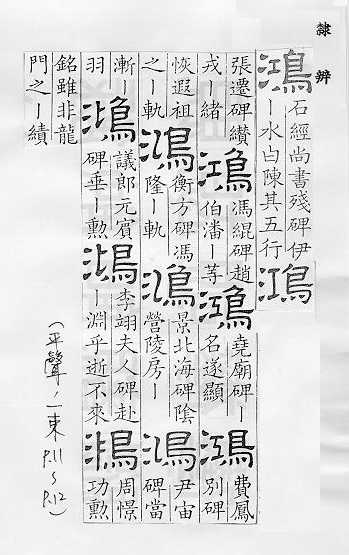 隸辨
鴻
石經尚書殘碑伊
ー水白陳其五行
鴻
張遷碑纘
戎ー緒
鴻
馮緄碑趙
伯潘ー等
鴻
堯廟碑ー
名遂顯
鴻
費鳳
別碑
恢遐祖
之ー軌
鴻
衡方碑馮
隆ー軌
鴻
景北海碑陰
營陵房ー
鴻
尹宙
碑當
漸ー
羽
鴻
議郎元賓
碑垂ー勲
鴻
李翊夫人碑赴
ー淵乎逝不來
鴻
周憬
功勲
銘雖非龍
門之ー績
(平聲,一東 P.11~P.12)